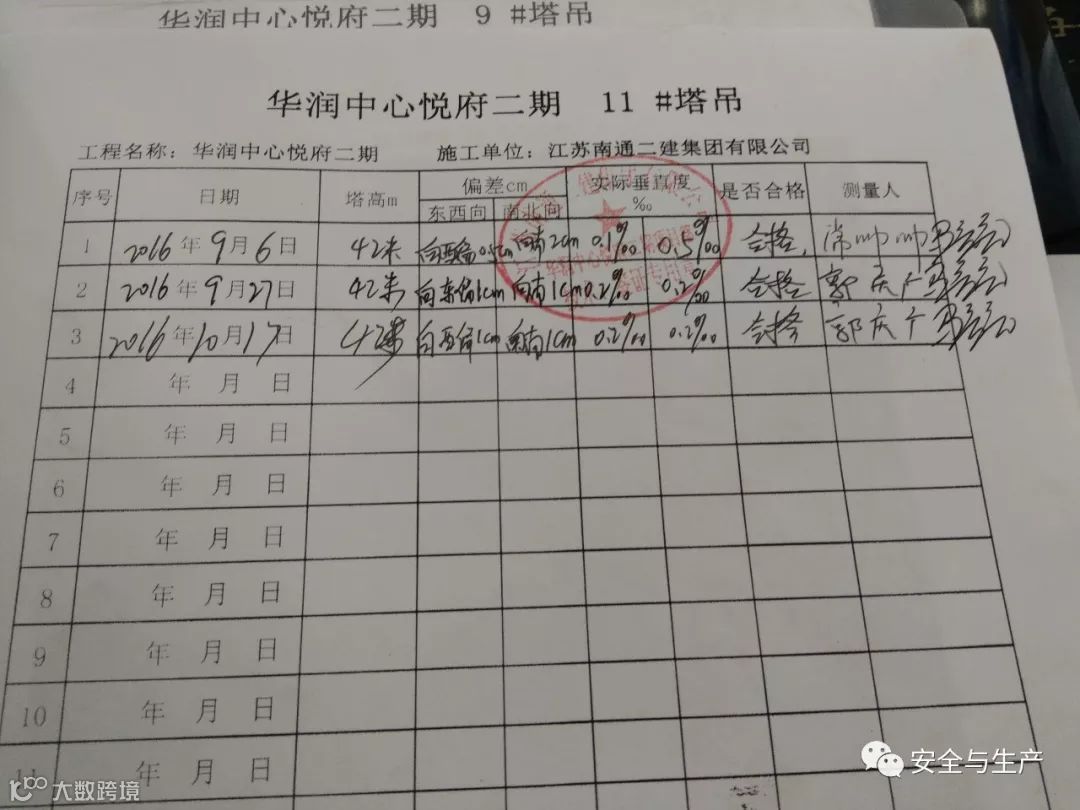 华润中心悦府二期 9 #塔吊
华润中心悦府二期 11 #塔吊
工程名称：华润中心悦府二期 施工单位：江苏南通二建集团有限公司
序号 日期 塔高m 偏差cm 实际垂直度‰ 是否合格 测量人
东西向 南北向
1 2016年9月6日 42米 向西偏0.5cm 向南2cm 0.1‰ 0.5‰ 合格 常帅帅
2 2016年9月27日 42米 向东偏1cm 向南1cm 0.2‰ 0.2‰ 合格 郭庆广
3 2016年10月17日 42米 向西偏1cm 向南1cm 0.2‰ 0.2‰ 合格 郭庆广
4 年 月 日
5 年 月 日
6 年 月 日
7 年 月 日
8 年 月 日
9 年 月 日
10 年 月 日
11 年 月 日
安全与生产
大数跨境